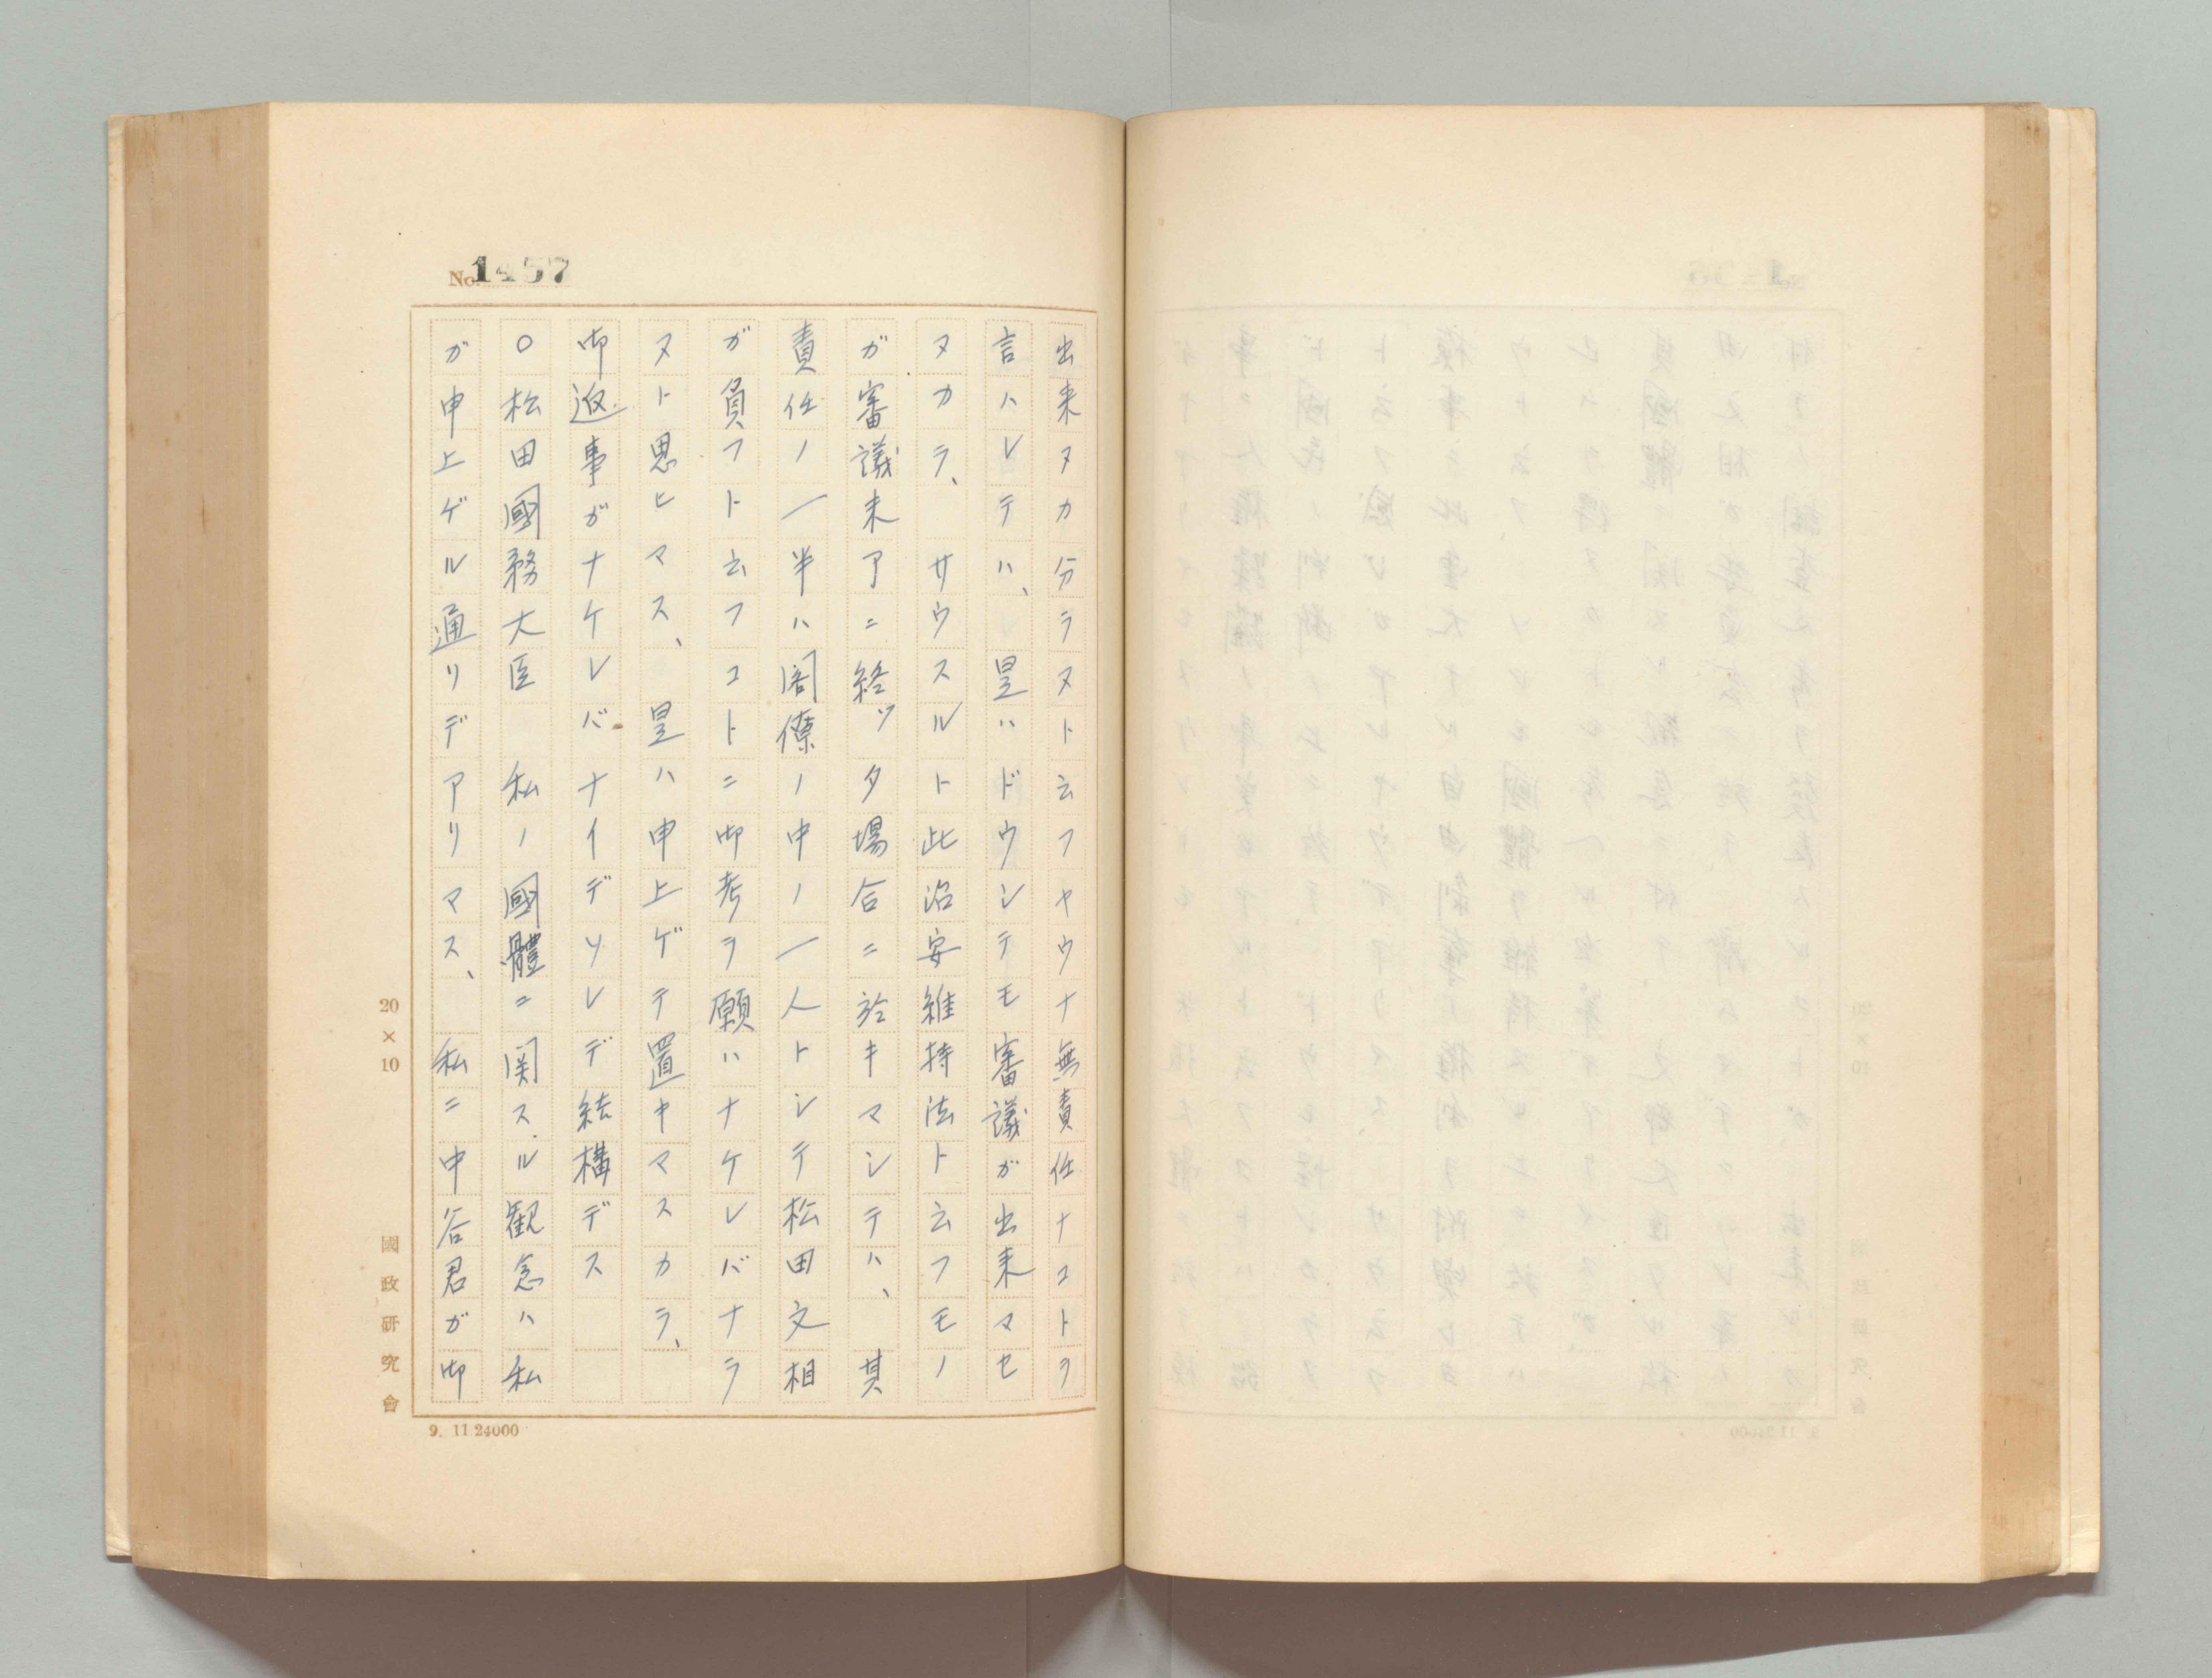 No. 1457
出来ヌカ分ラヌト云フヤウナ無責任ナコトヲ
言ハレテハ、昰ハドウシテモ審議ガ出来マセ
ヌカラ、サウスルト此治安維持法ト云フモノ
ガ審議未了ニ終ッタ場合ニ於キマシテハ、其
責任ノ一半ハ閣僚ノ中ノ一人トシテ松田文相
ガ負フト云フコトニ御考ヲ願ハナケレバナラ
ヌト思ヒマス、昰ハ申上ゲテ置キマスカラ、
御返事ガナケレバナイデソレデ結構デス
○松田國務大臣 私ノ國體ニ関スル観念ハ私
ガ申上ゲル通リデアリマス、私ニ中谷君ガ御
20×10
國政研究會
9. 11.24000